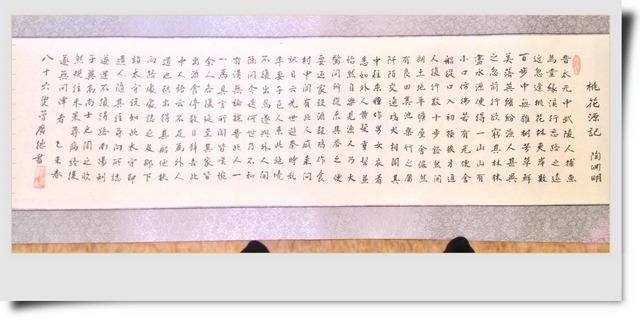 桃花源記 陶淵明
晉太元中武陵人捕魚
為業緣溪行忘路之遠
近忽逢桃花林夾岸數
百步中無雜樹芳草鮮
美落英繽紛漁人甚異
之復前行欲窮其林林
盡水源便得一山山有
小口彷彿若有光便舍
船從口入初極狹才通
人復行數十步豁然開
朗土地平曠屋舍儼然
有良田美池桑竹之屬
阡陌交通雞犬相聞其
中往來種作男女衣著
悉如外人黃髮垂髫並
怡然自樂見漁人乃大
驚問所從來具答之便
要還家設酒殺雞作食
村中聞有此人咸來問
訊自云先世避秦時亂
率妻子邑人來此絕境
不復出焉遂與外人間
隔問今是何世乃不知
有漢無論魏晉此人一
一為具言所聞皆歎惋
余人各復延至其家皆
出酒食停數日辭去此
中人語云不足為外人
道也既出得其船便扶
向路處處誌之及郡下
詣太守說如此太守即
遣人隨其往尋向所誌
遂迷不復得路南陽劉
子驥高尚士也聞之欣
然規往未果尋病終後
遂無問津者 乙未春
八十六叟 廣德書